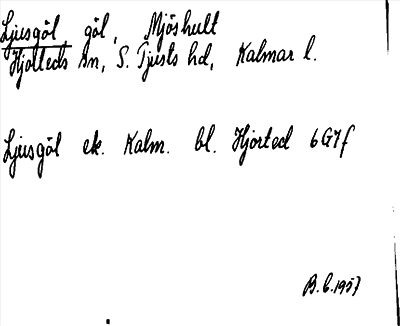 Ljusgöl, göl, Mjöshult
Hjorteds sn, S. Tjusts hd, Kalmar l.
Ljusgöl ek. Kalm. bl. Hjorted 6G7f
B.L.1957